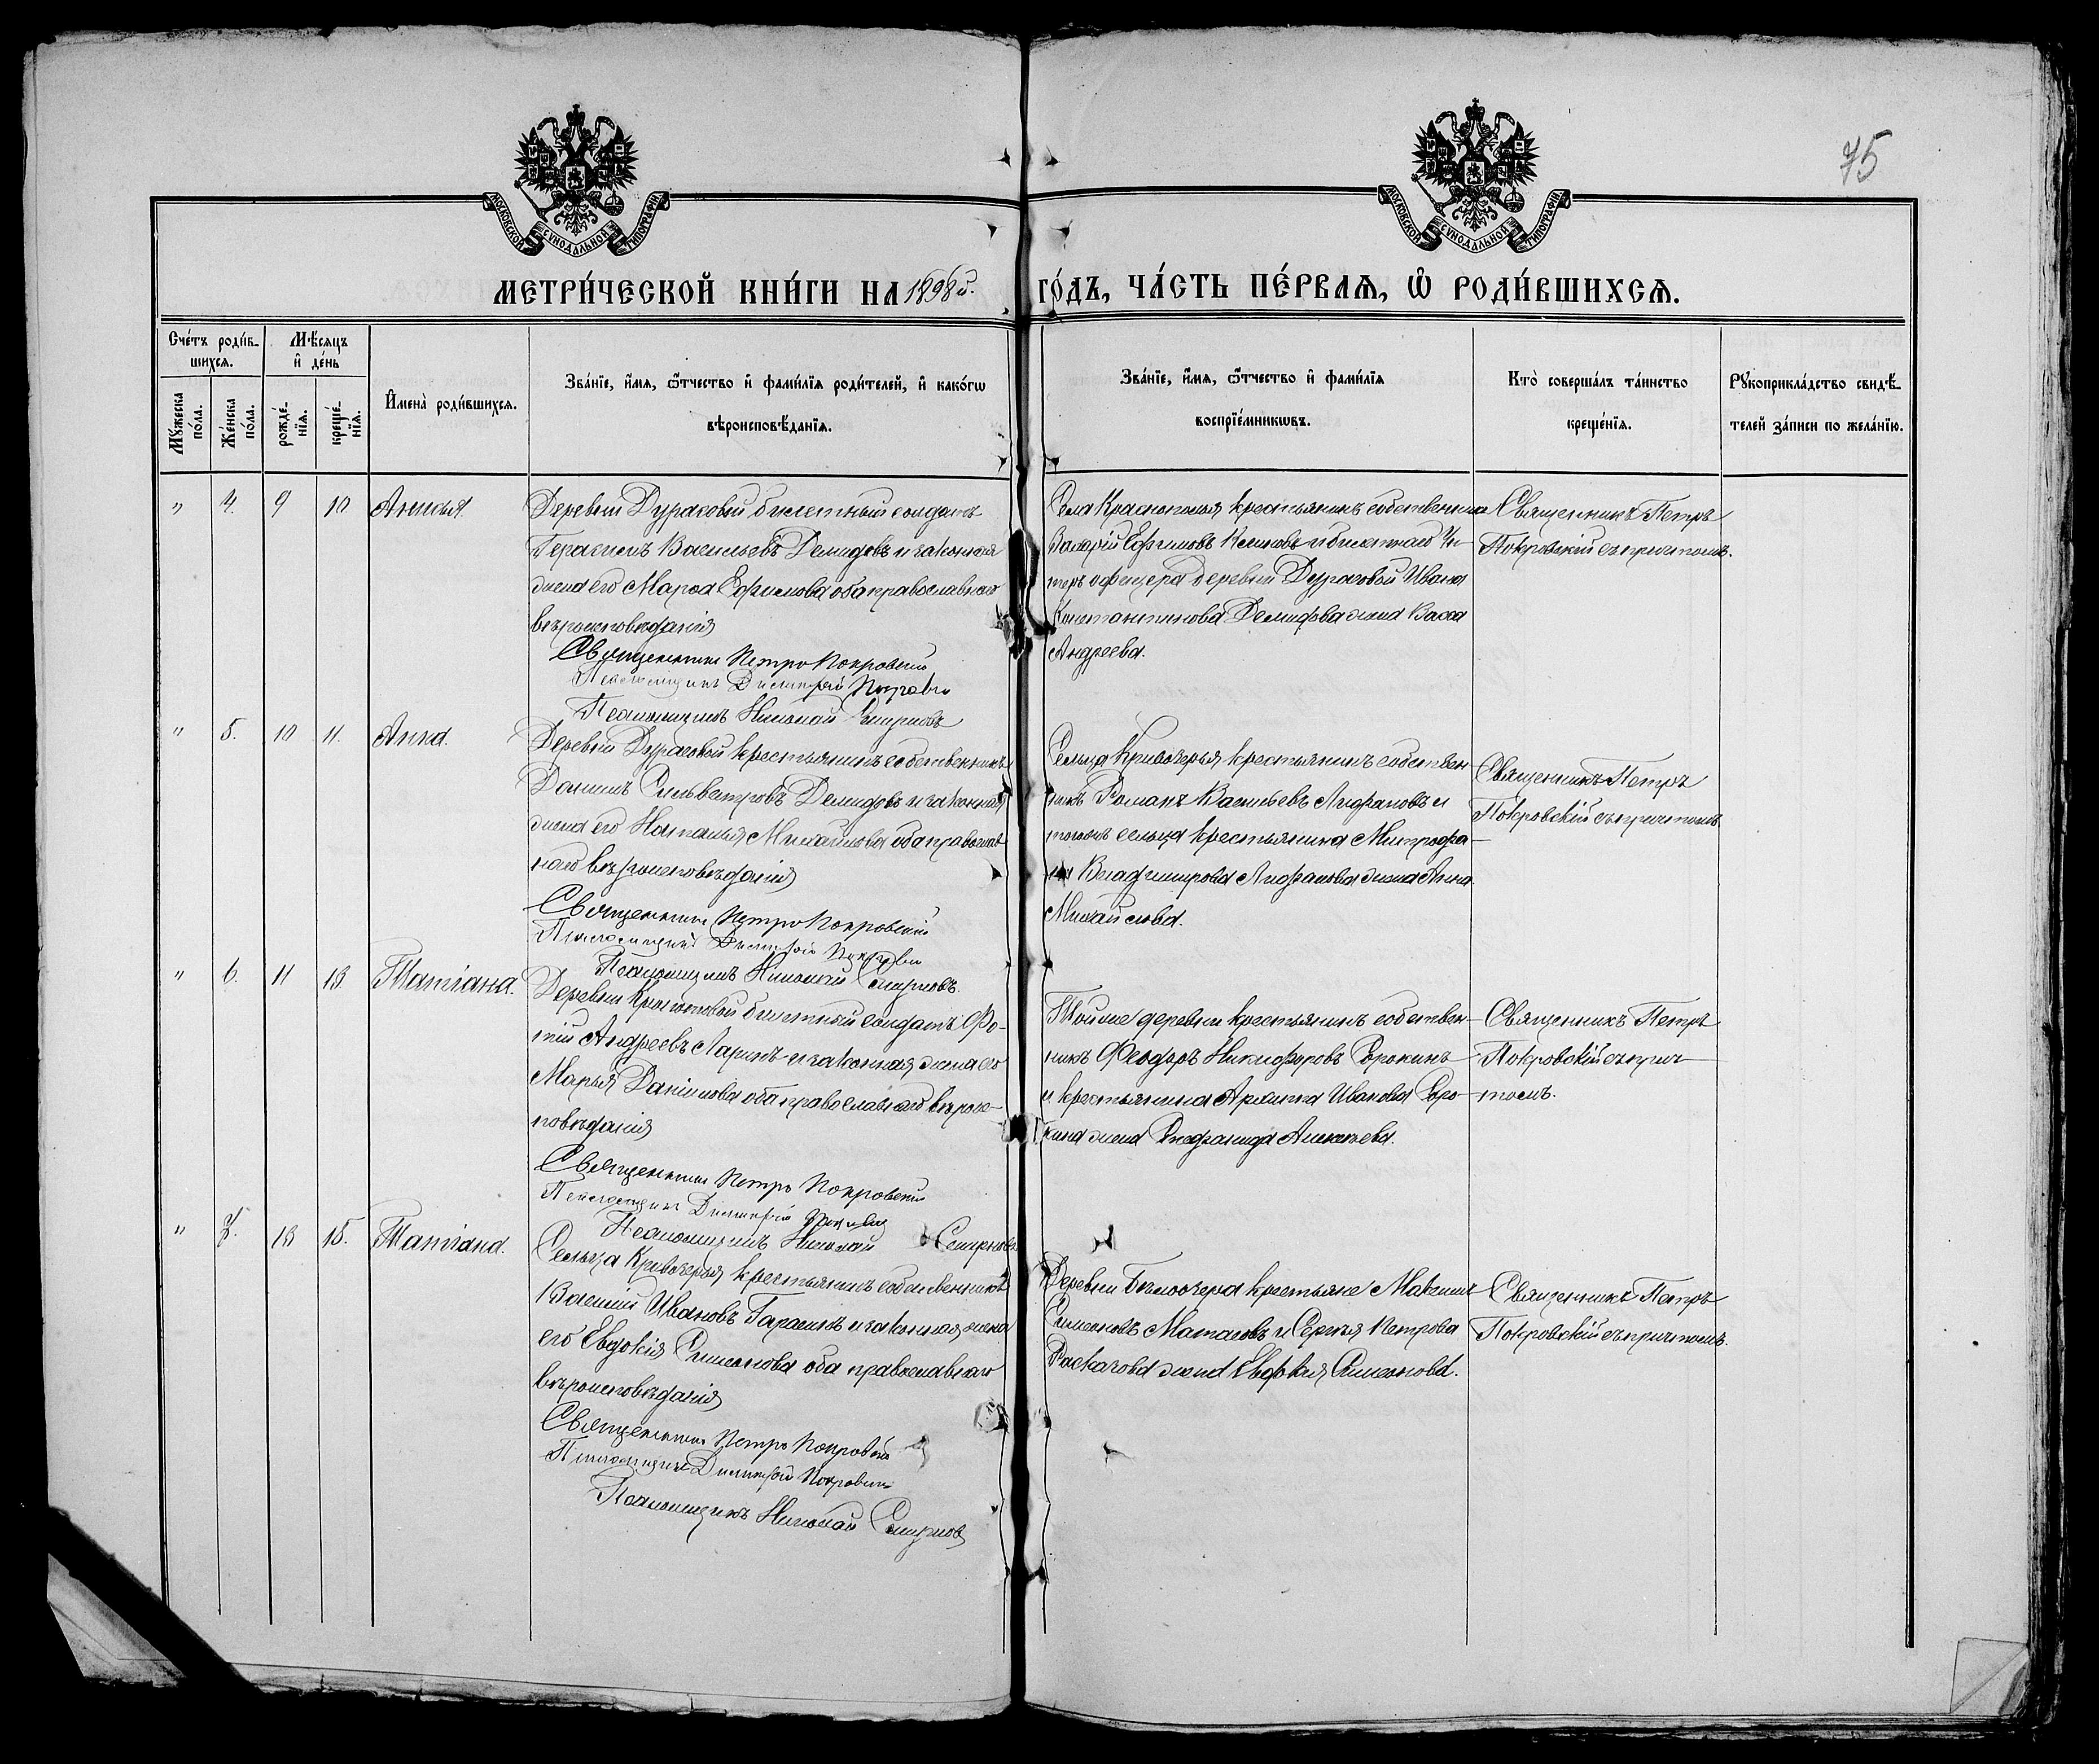 75
МОСКОВСКОЙ СѴНОДАЛЬНОЙ ТИПОГРАФІИ
МОСКОВСКОЙ СѴНОДАЛЬНОЙ ТИПОГРАФІИ
МЕТРИ́ЧЕСКОЙ КНИ́ГИ НА 1898й. ГО́ДЪ, ЧА́СТЬ ПЕ́РВАѦ, Ѡ҆ РОДИ́ВШИХСѦ.
Сче́тъ роди́в-
шихсѧ.
Мꙋ́жеска по́ла.
Же́нска по́ла.
Мѣ́сѧцъ и҆ де́нь
рожде́-нїѧ.
креще́-нїѧ.
И҆мена̀ роди́вшихсѧ.
Зва́нїе, и҆́мѧ, ѻ҆́тчество и҆ фами́лїѧ роди́телей, и҆ како́гѡ
вѣроисповѣ́данїѧ.
Зва́нїе, и҆́мѧ, ѻ҆́тчество и҆ фами́лїѧ
воспрїе́мникѡвъ.
Кто̀ соверша́лъ та́инство
креще́нїѧ.
Рꙋкоприкла́дство свидѣ́-
телей за́писи по жела́нїю.
" 4. 9 10
Деревни Дурасовой билетный солдатъ
Герасимъ Васильевъ Демидовъ и законная
жена его Марѳа Ефимова оба православнаго
вѣроисповѣданія
Священникъ Петръ Покровскій
Псаломщикъ Димитрій
Псаломщикъ Николай Смирновъ
Села крестьянинъ собственникъ
Валерій Ефимовъ и билетнаго Ун-
теръ офицера деревни Дурасовой Ивана
Константинова Демидова жена Васса
Андреева.
Священникъ Петръ
Покровскій съ причтомъ.
" 5. 10 11. Анна.
Деревни Дурасовой крестьянинъ собственникъ
Сильвестровъ Демидовъ и законная
жена его Наталья Михайлова оба православ
наго вѣроисповѣданія
Священникъ Петръ Покровскій
Псаломщикъ Димитрій
Псаломщикъ Николай Смирновъ.
Сельца Кривозерья крестьянинъ собствен
никъ Романъ Васильевъ и
тогоже сельца крестьянина Митрофа-
на Владимирова жена Анна
Михайлова.
Священникъ Петръ
Покровскій съ причтомъ.
" 6. 11 13 Татіана.
Деревни билетный солдатъ Фо-
тій Андреевъ Ларинъ и законная жена его
Марья Даніилова оба православнаго вѣроис-
повѣданія
Священникъ Петръ Покровскій
Псаломщикъ Димитрій
Псаломщикъ Николай Смирновъ
Той же деревни крестьянинъ собствен-
никъ Ѳеодоръ Никифоровъ Сорокинъ
и крестьянина Архипа Иванова Соро-
кина жена Алексѣева.
Священникъ Петръ
Покровскій съ прич-
томъ.
" 7. 13 15. Татіана.
Сельца Кривозерья крестьянинъ собственникъ
Василій Ивановъ и законная жена
его Евдокія Симеонова оба православнаго
вѣроисповѣданія
Священникъ Петръ Покровскій
Псаломщикъ Димитрій Покровскій
Псаломщикъ Николай Смирновъ
Деревни Бѣлоозера крестьяне Максимъ
Симеоновъ и Сергѣя Петрова
жена Евдокия Симеонова.
Священникъ Петръ
Покровскій съ причтомъ.